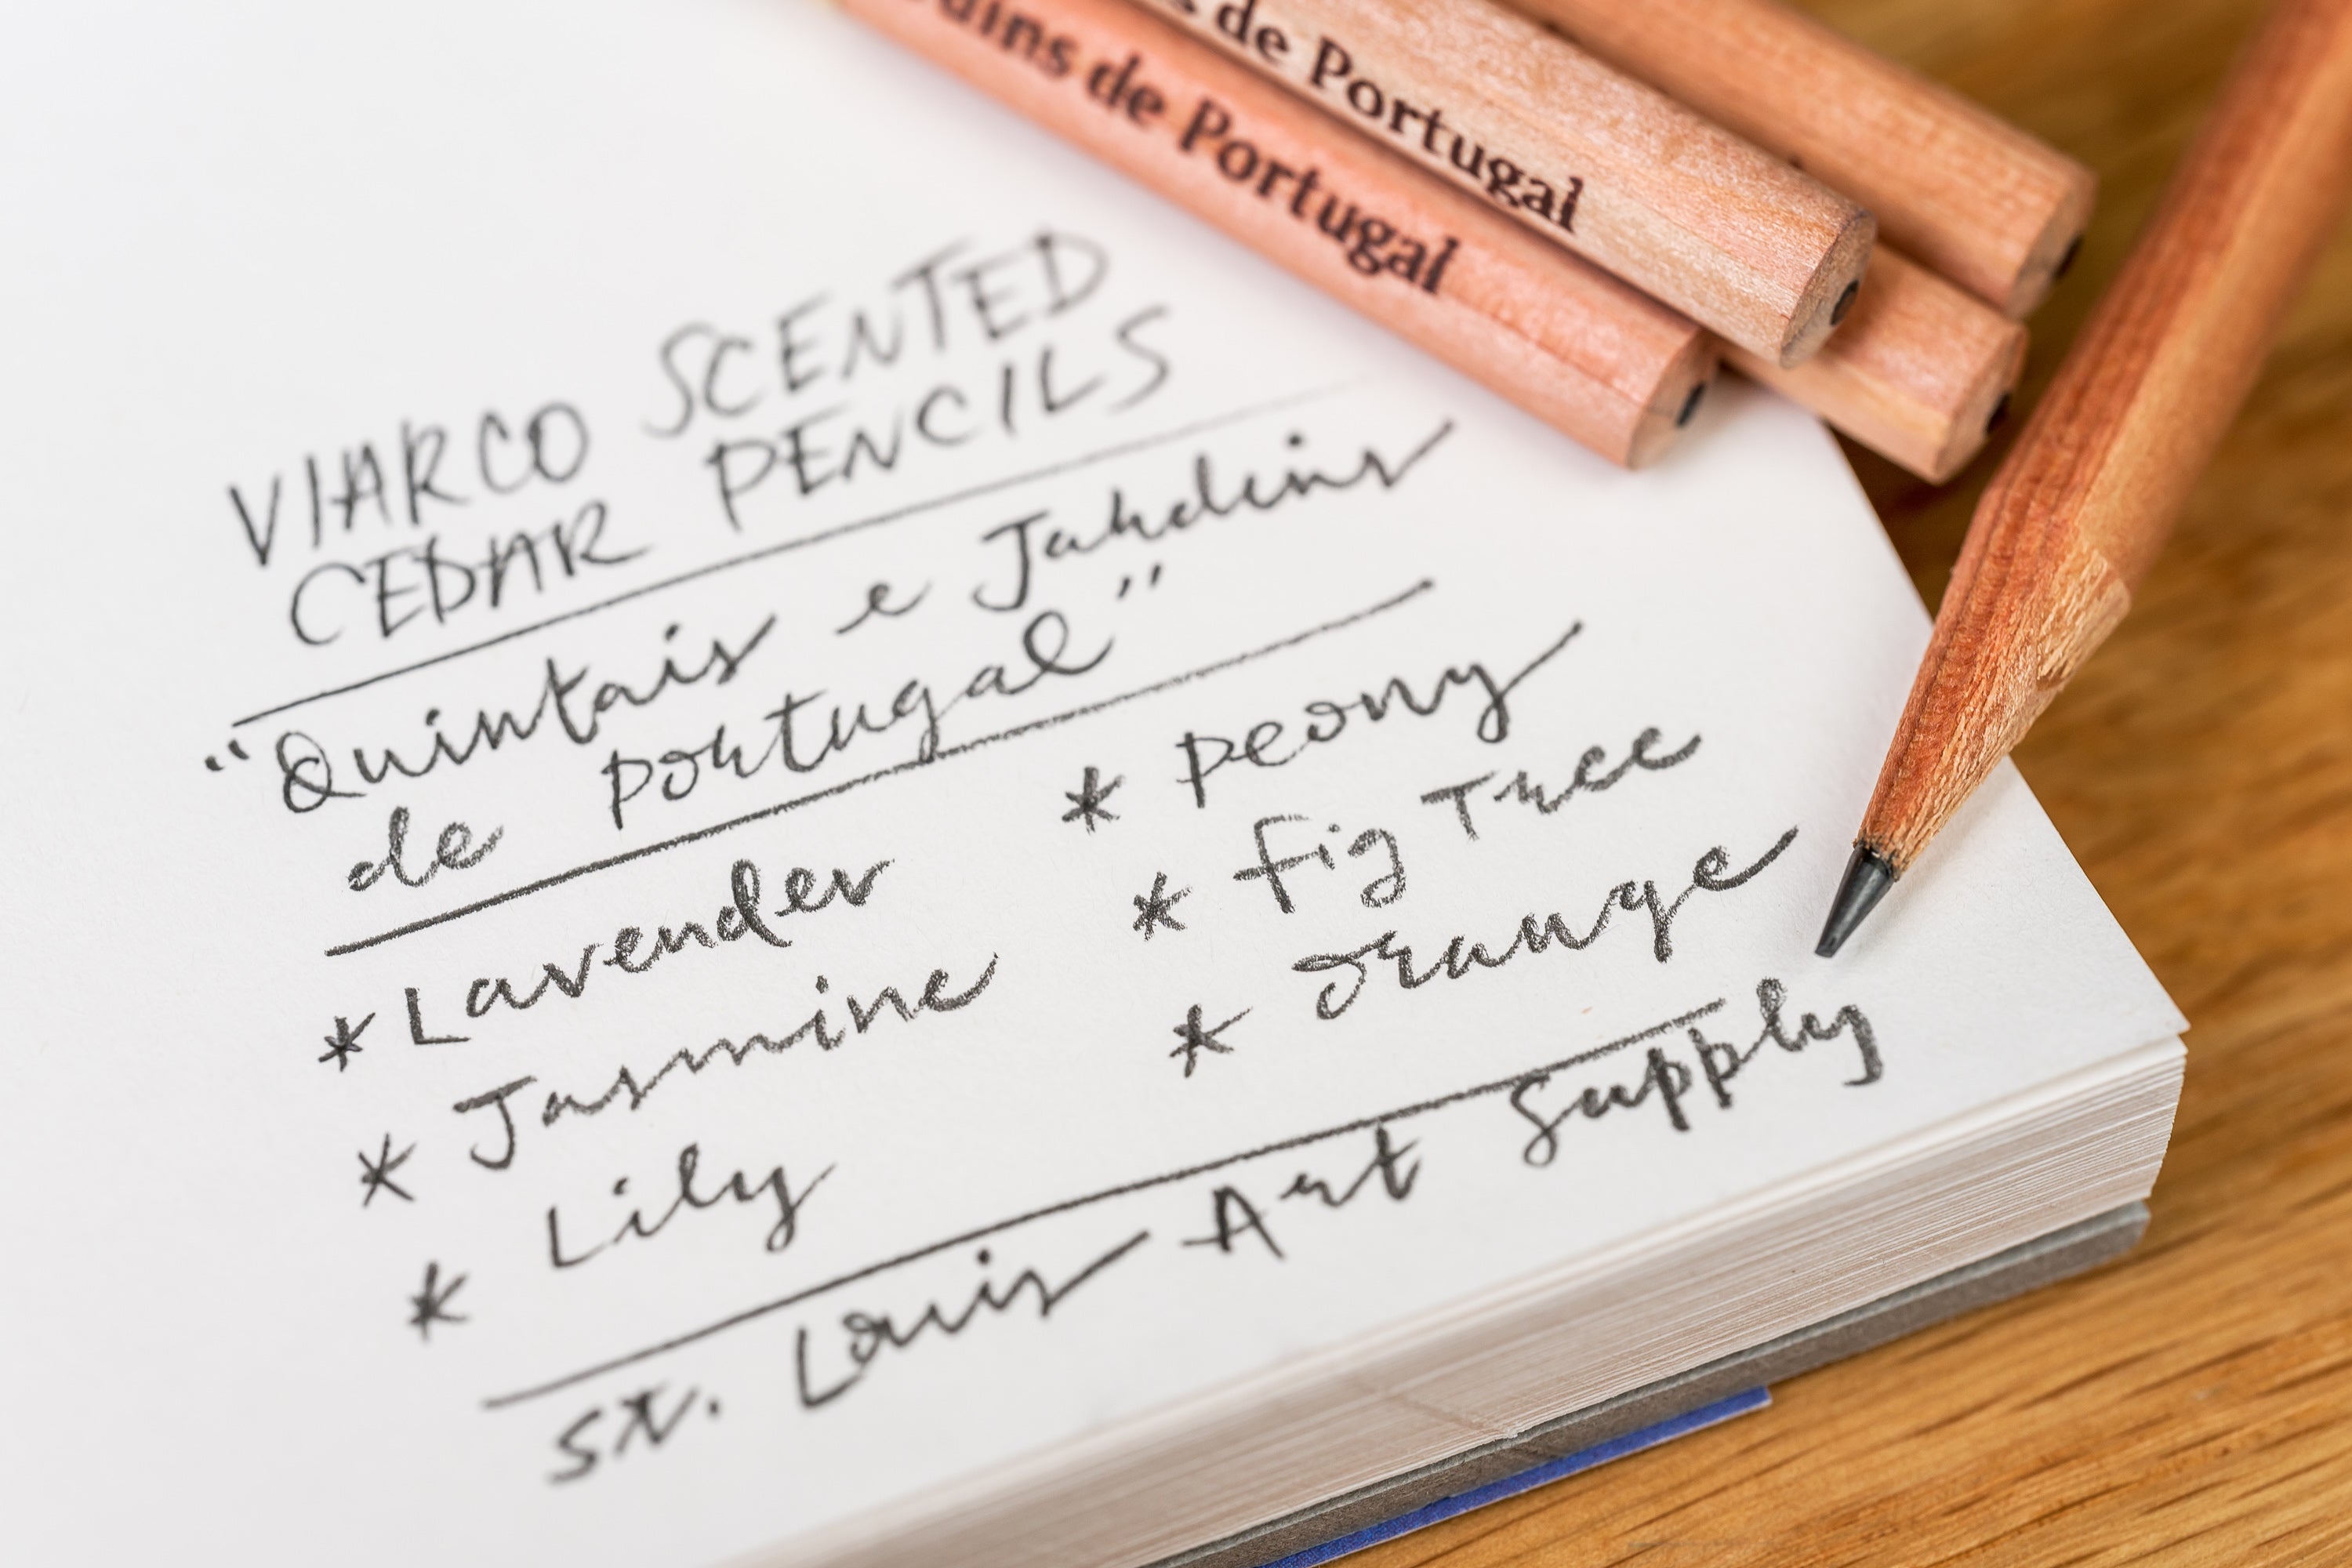 dins de Portugal
s de Portugal
VIARCO SCENTED
CEDAR PENCILS
"Quintais e Jardins
de Portugal"
* Lavender
* Jasmine
* Lily
* Peony
* Fig Tree
* Orange
St. Louis Art Supply